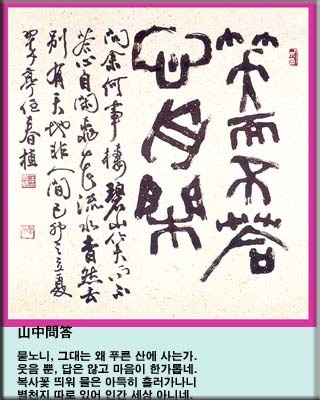 笑而不答
心自閑
問余何事棲碧山笑而不
答心自閑桃花流水杳然去
別有天地非人間己卯之立夏
亭任春植
山中問答
묻노니, 그대는 왜 푸른 산에 사는가.
웃을 뿐, 답은 않고 마음이 한가롭네.
복사꽃 띄워 물은 아득히 흘러가나니
별천지 따로 있어 인간 세상 아니네.